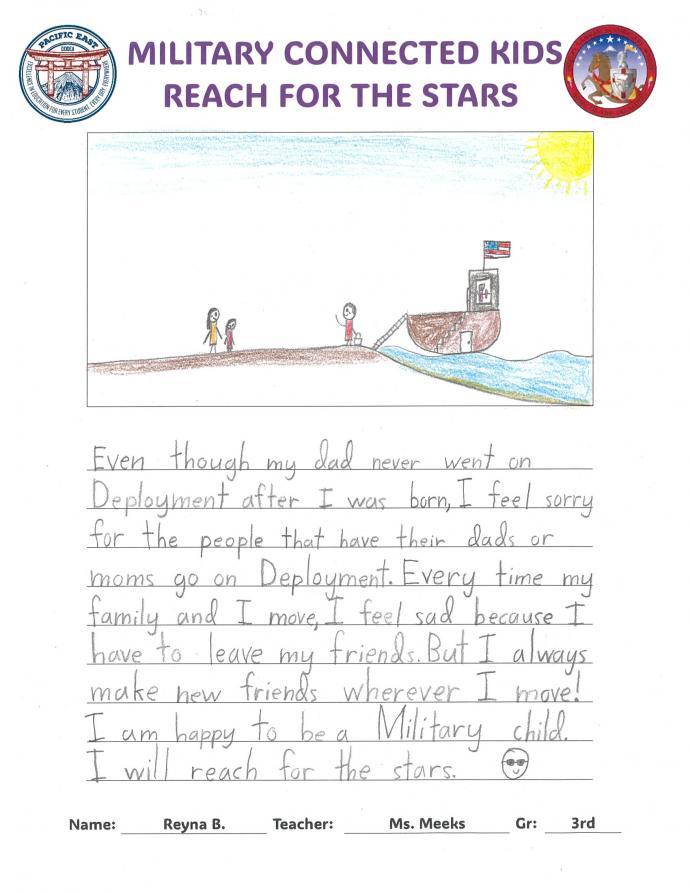 PACIFIC EAST
DODEA
EXCELLENCE IN EDUCATION FOR EVERY STUDENT, EVERY DAY, EVERYWHERE
MILITARY CONNECTED KIDS
REACH FOR THE STARS
Even though my dad never went on
Deployment after I was born, I feel sorry
for the people that have their dads or
moms go on Deployment. Every time my
family and I move, I feel sad because I
have to leave my friends. But I always
make new friends wherever I move!
I am happy to be a Military child.
I will reach for the stars.
Name: Reyna B. Teacher: Ms. Meeks Gr: 3rd